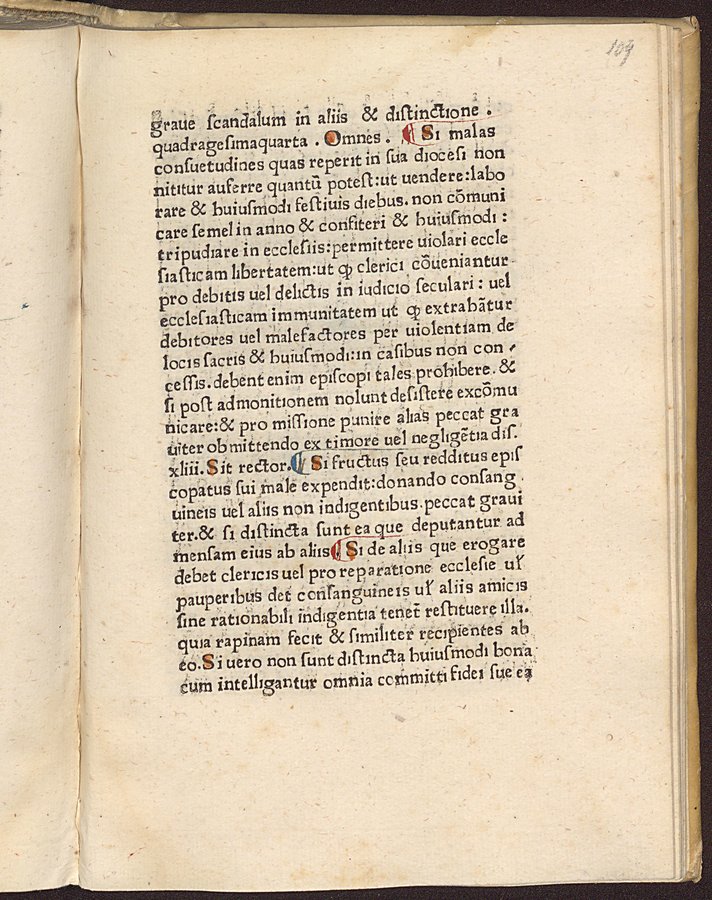 109
graue scandalum in aliis & distinctione .
quadragesimaquarta . Omnes . ¶ Si malas
consuetudines quas reperit in sua diocesi non
nititur auferre quantū potest:ut uendere:labo
rare & huiusmodi festiuis diebus. non cōmuni
care semel in anno & confiteri & huiusmodi :
tripudiare in ecclesiis:permittere uiolari eccle
siasticam libertatem:ut ꝙ clerici cōueniantur
pro debitis uel delictis in iudicio seculari : uel
ecclesiasticam immunitatem ut ꝙ extrabātur
debitores uel malefactores per uiolentiam de
locis sacris & huiusmodi:in casibus non con ⸗
cessis. debent enim episcopi tales prohibere. &
si post admonitionem nolunt desistere excōmu
nicare:& pro missione punire alias peccat gra
uiter obmittendo ex timore uel negligētia dis.
xliii. Sit rector. ¶ Si fructus seu redditus epis
copatus sui male expendit:donando consang .
uineis uel aliis non indigentibus peccat graui
ter.& si distincta sunt ea que deputantur ad
mensam eius ab aliis ¶ Si de aliis que erogare
debet clericis uel pro reparatione ecclesie uł
pauperibus det consanguineis uł aliis amicis
sine rationabili indigentia tenet̄ restituere illa.
quia rapinam fecit & similiter recipientes ab
eo. Si uero non sunt distincta huiusmodi bona
cum intelligantur omnia committi fidei sue ea